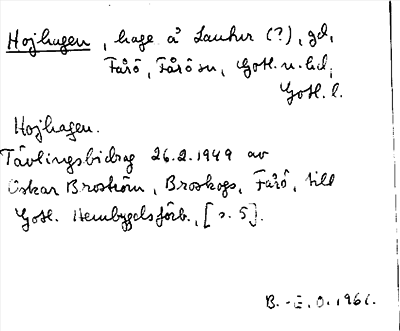 Hojhagen, hage å Lauhur (?), gd,
Fårö, Fårö sn, Gotl. n. hd,
Gotl. l.
Hojhagen.
Tävlingsbidrag 26.2.1949 av
Oskar Broström, Broskogs, Fårö, till
Gotl. Hembygdsförb., [s. 5].
B.-E. O. 1961.